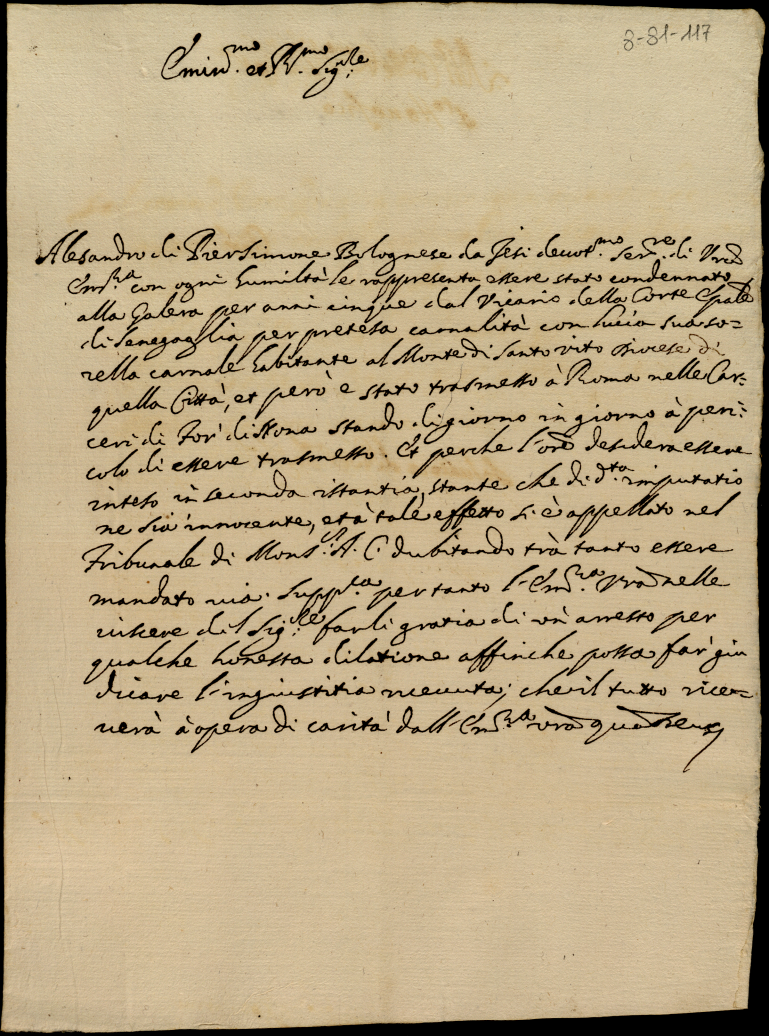 8-81-117
Emin.mo et R.mo Sig.re
Alesandro di Piersimone Bolognese da Jesi devot.mo Ser.re di Vra
Em.ra con ogni humiltà le rappresenta essere stato condennato
alla Galera per anni cinque dal Vicario della Corte Epale
di Senegaglia per pretesa carnalità con Lucia sua so=
rella carnale habitante al Monte di Santo vito Diocese di
quella Città, et però è stato trasmesso à Roma nelle Car=
ceri di Tor' di Nona stando di giorno in giorno à peri=
colo di essere trasmesso. Et perche l'ore desidera essere
inteso in seconda istantia, stante che di d.ta imputatio
ne sia innocente, et à tale effetto si è appellato nel
Tribunale di Mons.r A. C. dubitando trà tanto essere
mandato via. Supp.ca per tanto l'Em.ra Vra nelle
viscere del Sig.re farli gratia di un' arresto per
qualche honesta dilatione affinche possa far' giu
dicare l'ingiustitia ricevuta; che il tutto rice=
verà à opera di carità dall'Em.ra vra qua Deus